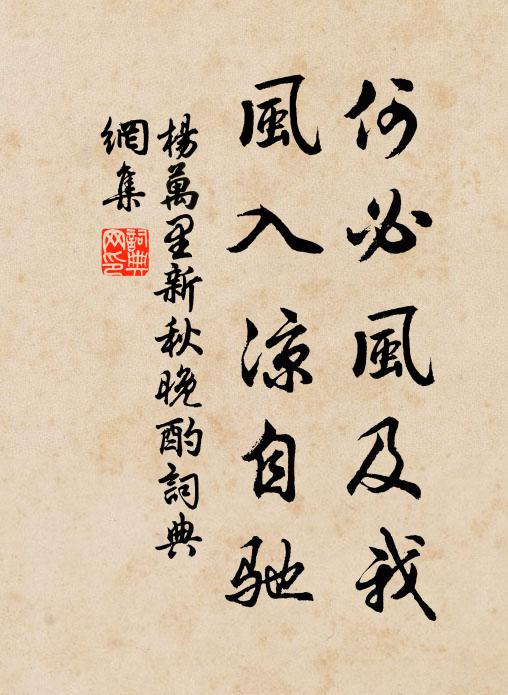 何必風及我
風入凉自馳
楊萬里新秋晚酌詞典
網集
詞典
网印